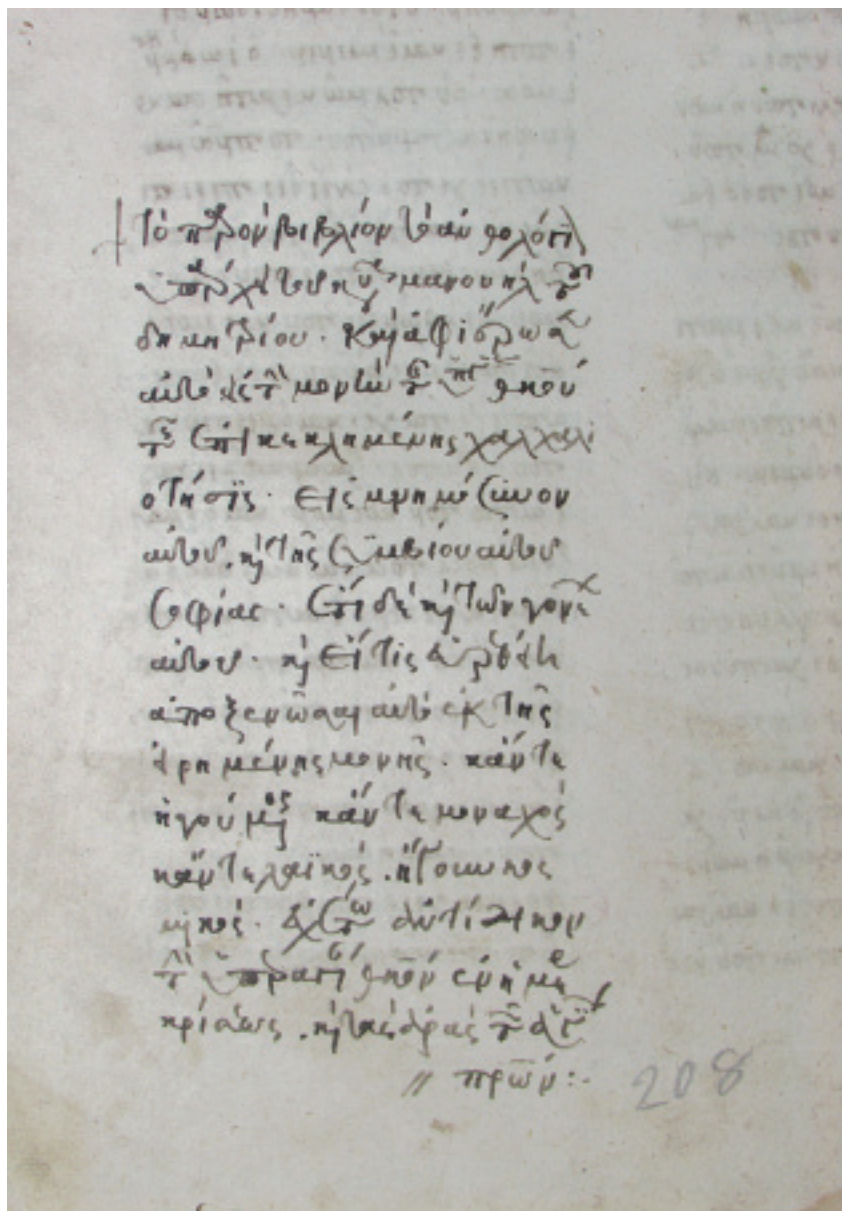 Τὸ παρὸν βιβλίον τὸ ἀνθολόγιον
ὑπάρχει τοῦ κυροῦ μανουὴλ τοῦ
καὶ ἀφιέρωσα
αὐτὸ εἰς τὴν μονὴν τῆς ὑπεραγίας θκου
τῆς ἐπικεκλημένης
εἰς μνημόσυνον
αὐτοῦ. καὶ τῆς συμβίου αὐτοῦ
σοφίας. ἔτι δὲ καὶ τῶν γονέων
αὐτοῦ. καὶ εἴ τις
ἀποξενῶσαι αὐτὸ ἐκ της
εἰρημένης μονῆς. κάν τε
ηγούμενος κάν τε μοναχὸς
κάν τε λαϊκὸς. ἤτοι
μικός. ἐχέτω ἀντίδικον
τὴν ὑπεραγίαν θκον ἐν ἡμέρᾳ
κρίσεως. καὶ τὰς ἀρὰς τῶν ἁγίων
πρων:
208